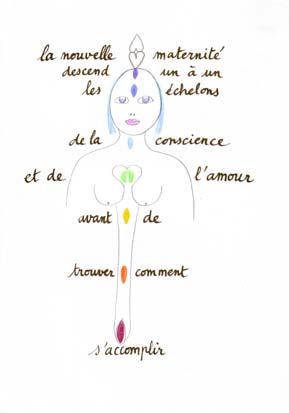 la nouvelle maternité
descend un à un
les échelons
de la conscience
et de l'amour
avant de
trouver comment
s'accomplir